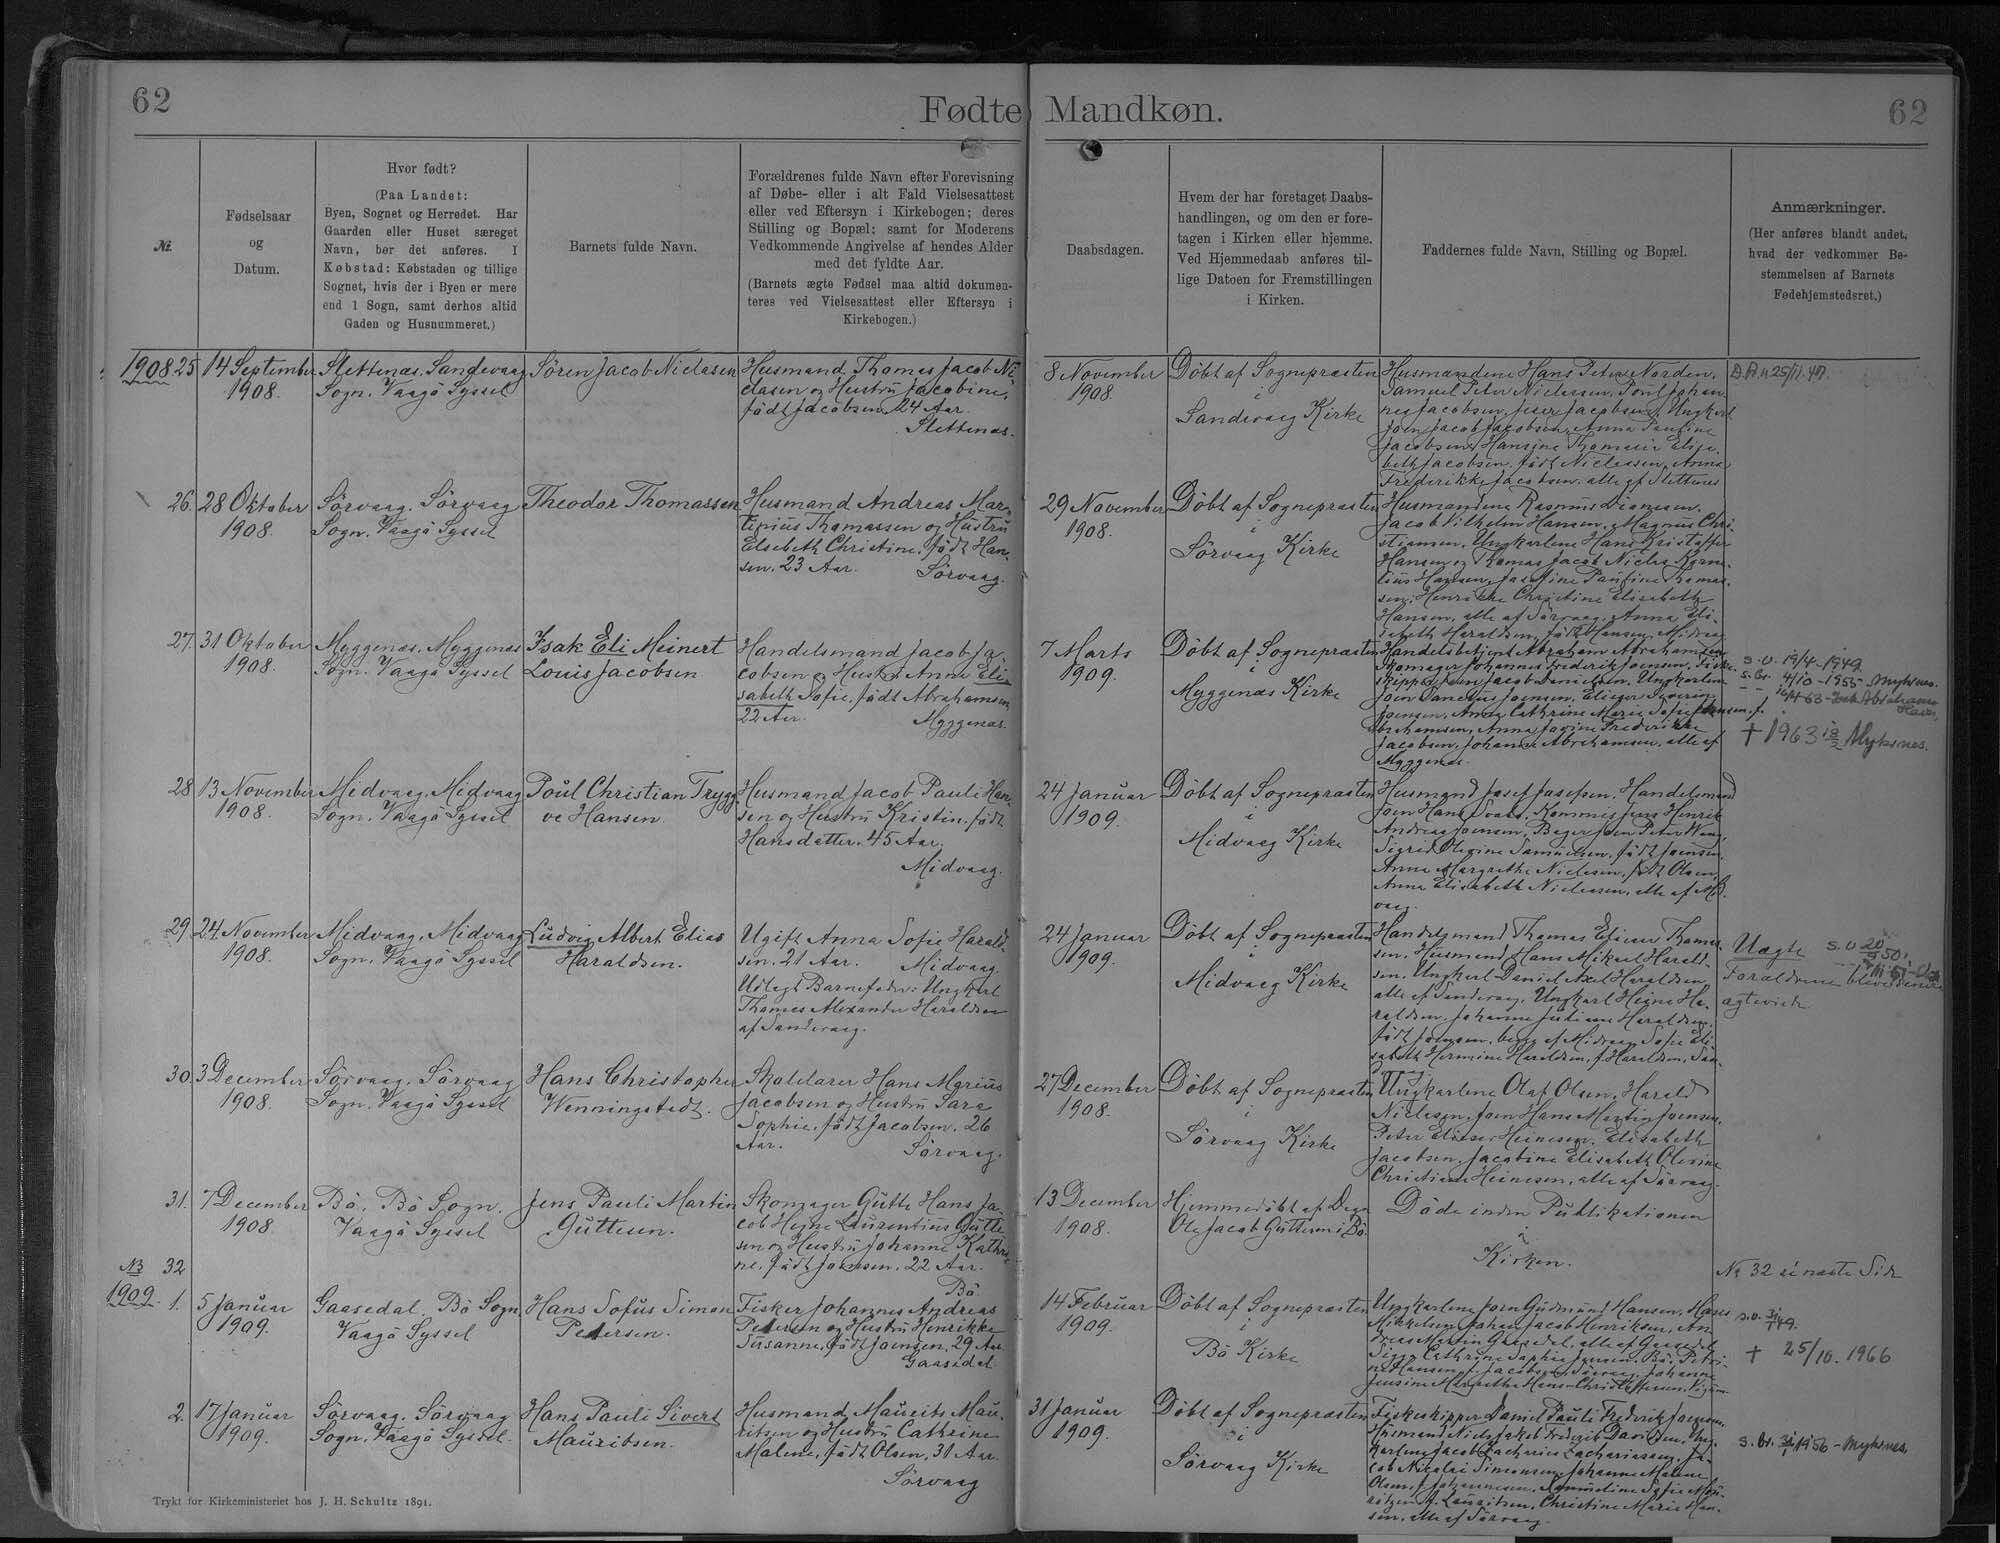 62
Fødte Mandkøn.
62
Nr.
Fødselsaar
og
Datum.
Hvor født?
(Paa Landet:
Byen, Sognet og Herredet. Har
Gaarden eller Huset særeget
Navn, bør det anføres. I
Købstad: Købstaden og tillige
Sognet, hvis der i Byen er mere
end 1 Sogn, samt derhos altid
Gaden og Husnummeret.)
Barnets fulde Navn.
Forældrenes fulde Navn efter Forevisning
af Døbe- eller i alt Fald Vielsesattest
eller ved Eftersyn i Kirkebogen; deres
Stilling og Bopæl; samt for Moderens
Vedkommende Angivelse af hendes Alder
med det fyldte Aar.
(Barnets ægte Fødsel maa altid dokumen-
teres ved Vielsesattest eller Eftersyn i
Kirkebogen.)
Daabsdagen.
Hvem der har foretaget Daabs-
handlingen, og om den er fore-
tagen i Kirken eller hjemme.
Ved Hjemmedaab anføres til-
lige Datoen for Fremstillingen
i Kirken.
Faddernes fulde Navn, Stilling og Bopæl.
Anmærkninger.
(Her anføres blandt andet,
hvad der vedkommer Be-
stemmelsen af Barnets
Fødehjemstedsret.)
1908. 25
14 September
1908.
Slettenæs. Sandevaag
Sogn. Vaagö Syssel
Sören Jacob Niclasen
Husmand Thomas Jacob Ni-
clasen og Hustru Jacobine,
födt Jacobsen, 24 Aar.
Slettenæs.
8 November
1908
Döbt af Sognepræsten
i
Sandevaag Kirke
Husmændene Hans Peter Norden,
Samuel Peter Niclassen, Poul Johan-
nes Jacobsen, Jeser Jacobsen, Ungkarl
Joen Jacob Jacobsen, Anna Pauline
Jacobsen, Hansine Thomasia Elisa-
beth Jacobsen, födt Niclassen, Anna
Frederikke Jacobsen, alle af Slettenæs
26.
28 Oktober
1908.
Sörvaag. Sörvaag
Sogn. Vaagö Syssel
Theodor Thomassen
Husmand Andreas Mar-
tinius Thomassen og Hustru
Elsebeth Christine, födt Han-
sen. 23 Aar.
Sörvaag.
29 November
1908.
Döbt af Sognepræsten
i
Sörvaag Kirke
Husmændene Rasmus
Jacob Vilhelm Hansen, Magnus Chri-
stiansen, Ungkarlene Hans Kristoffer
Hansen og Thomas Jacob Niclas Korne-
lius Hansen, Josefine Pauline Thomas-
sen, Henrikke Christine Elisabeth
Hansen, alle af Sörvaag, Anna Eli-
sabeth Haraldsen, födt Hansen, Midvaag
27.
31 Oktober
1908.
Myggenæs. Myggenæs
Sogn. Vaagö Syssel
Isak Eli Meinert
Louis Jacobsen
Handelsmand Jacob Ja-
cobsen og Hustru Anna Eli-
sabeth Sofie, födt Abrahamsen
22 Aar.
Myggenæs.
7 Marts
1909.
Döbt af Sognepræsten
i
Myggenæs Kirke
Handelsbetjent Abraham Abrahamsen
Skomager Johannes Frederik Joensen, Fiske-
skipper Joen Jacob Danielsen, Ungkarlene
Joen Joensen, Elieser Severin
Joensen, Anna Cathrine Marie Sofie Joensen, f.
Abrahamsen, Anna Frederikke
Jacobsen, Johanna Abrahamsen, alle af
Myggenæs.
s.v. 19/4-1949
s.br. 4/10-1955-Mykines.
+ 1963 Mykines.
28
13 November
1908.
Midvaag. Midvaag
Sogn. Vaagö Syssel
Poul Christian Trygg-
ve Hansen
Husmand Jacob Pauli Han-
sen og Hustru Kristin, födt
Hansdatter. 45 Aar.
Midvaag.
24 Januar
1909.
Döbt af Sognepræsten
i
Midvaag Kirke
Husmand Josef Josefsen, Handelsmand
Joen Hans Jens Henrik
Andreas Joensen, Bager Joen Peter
Sigrid Olevine Samuelsen, födt Joensen,
Anna Margrethe Niclasen, födt Olsen,
Anna Elisabeth Niclassen, alle af Mid-
vaag.
29
24 November
1908.
Midvaag. Midvaag
Sogn. Vaagö Syssel
Ludvig Albert Elias
Haraldsen.
Ugift Anna Sofie Harald-
sen. 21 Aar.
Midvaag.
Udlagt Barnefader: Ungkarl
Thomas Alexander Haraldsen
af Sandevaag.
24 Januar
1909.
Döbt af Sognepræsten
i
Midvaag Kirke
Handelsmand Thomas Elieser Thomas-
sen, Husmand Hans Mikael Harald-
sen, Ungkarl Daniel Axel Haraldsen,
alle af Sandevaag, Ungkarl Heine Ha-
raldsen, Johanne Juliane Haraldsen,
födt Joensen, begge af Midvaag, Sofie Eli-
sabeth Hermine Haraldsen, f. Haraldsen, San-
Uægte
Forældrene blevet senere
ægteviet
30
3 December
1908.
Sörvaag. Sörvaag
Sogn. Vaagö Syssel
Hans Christopher
Wenningstedt.
Skolelærer Hans Marius
Jacobsen og Hustru Sara
Sophie, födt Jacobsen. 26
Aar.
Sörvaag.
27 December
1908.
Döbt af Sognepræsten
i
Sörvaag Kirke
Ungkarlene Olaf Olsen, Harald
Niclasen, Joen Hans Martin Joensen,
Peter Elieser Heinesen, Elisabeth
Jacobsen, Jacobine Elisabeth Olevine
Christiane Heinesen, alle af Sörvaag.
31.
7 December
1908.
Bö. Bö Sogn.
Vaagö Syssel
Jens Pauli Martin
Guttesen.
Skomager Gutte Hans Ja-
cob Heine Laurentius Gutte-
sen og Hustru Johanne Kathri-
ne, födt Joensen, 22 Aar.
Bö.
13 December
1908.
Hjemmedöbt af
Ole Jacob Guttesen i Bö.
Döde inden Publikationen
i
Kirken.
NB 32
No 32 se næste Side
1909. 1.
5 Januar
1909.
Gaasedal. Bö Sogn.
Vaagö Syssel
Hans Sofus Simon
Petersen.
Fisker Johannes Andreas
Petersen og Hustru Henrikke
Susanne, födt Joensen. 29 Aar
Gaasedal.
14 Februar
1909.
Döbt af Sognepræsten
i
Bö Kirke
Ungkarlene Joen Gudmund Hansen, Hans
Mikkelsen, Johan Jacob Henriksen, An-
dreas Martin Gaasedal, alle af Gaasedal
Cathrine Sophie Joensen, Bö, Petri-
ne Hansen, f. Jacobsen, Sörvaag, Johanne
+ 25/10. 1966
2.
17 Januar
1909.
Sörvaag. Sörvaag
Sogn. Vaagö Syssel.
Hans Pauli Sivert
Mauritsen.
Husmand Maurits Mau-
ritsen og Hustru Cathrine
Malene, födt Olsen, 31 Aar.
Sörvaag
31 Januar
1909.
Döbt af Sognepræsten
i
Sörvaag Kirke
Fiskeskipper Daniel Pauli Frederik Joensen,
Husmand Niels Jakob Frederik Davidsen, Ung-
karlene Jacob Zacharias Zachariasen, Ja-
cob Nicolai Simonsen, Johanne Malene
Olsen, f. Johannesen, Sofie Mau-
ritzen, f. Lauritsen, Christine Marie Han-
sen, alle af Sörvaag.
s.br. 1956-Mykines.
Trykt for Kirkeministeriet hos J. H. Schultz 1891.